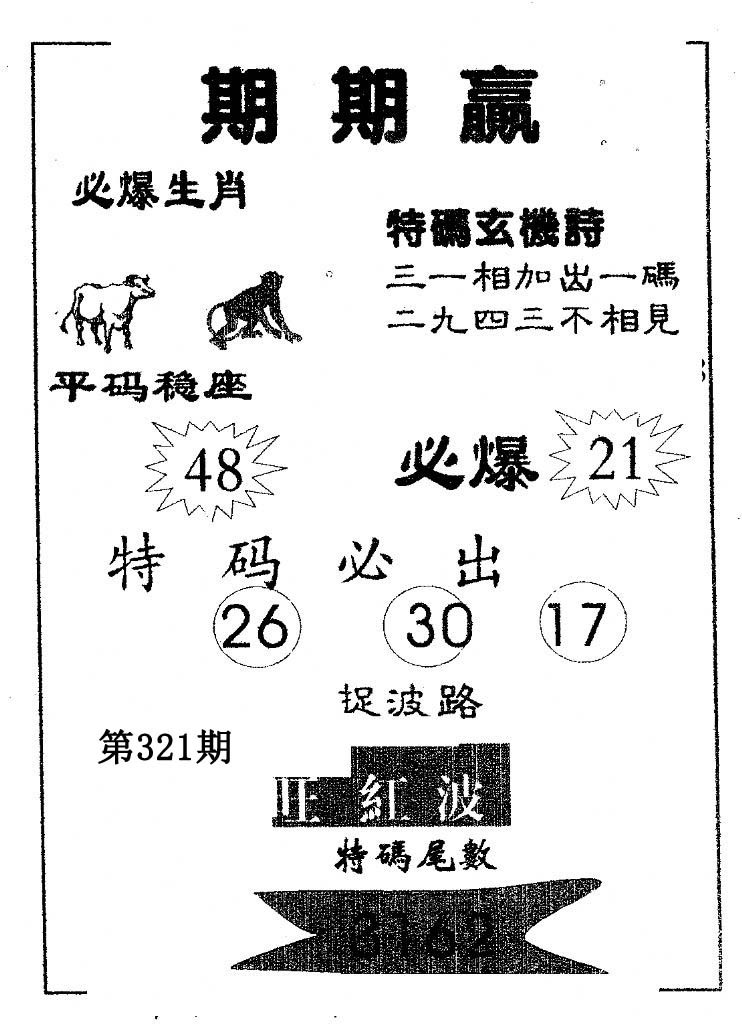 期期贏
必爆生肖
特碼玄機詩
三一相加出一碼
二九四三不相見
平码稳座
48
必爆 21
特码必出
26 30 17
捉波路
第321期
旺紅波
特碼尾數
8162